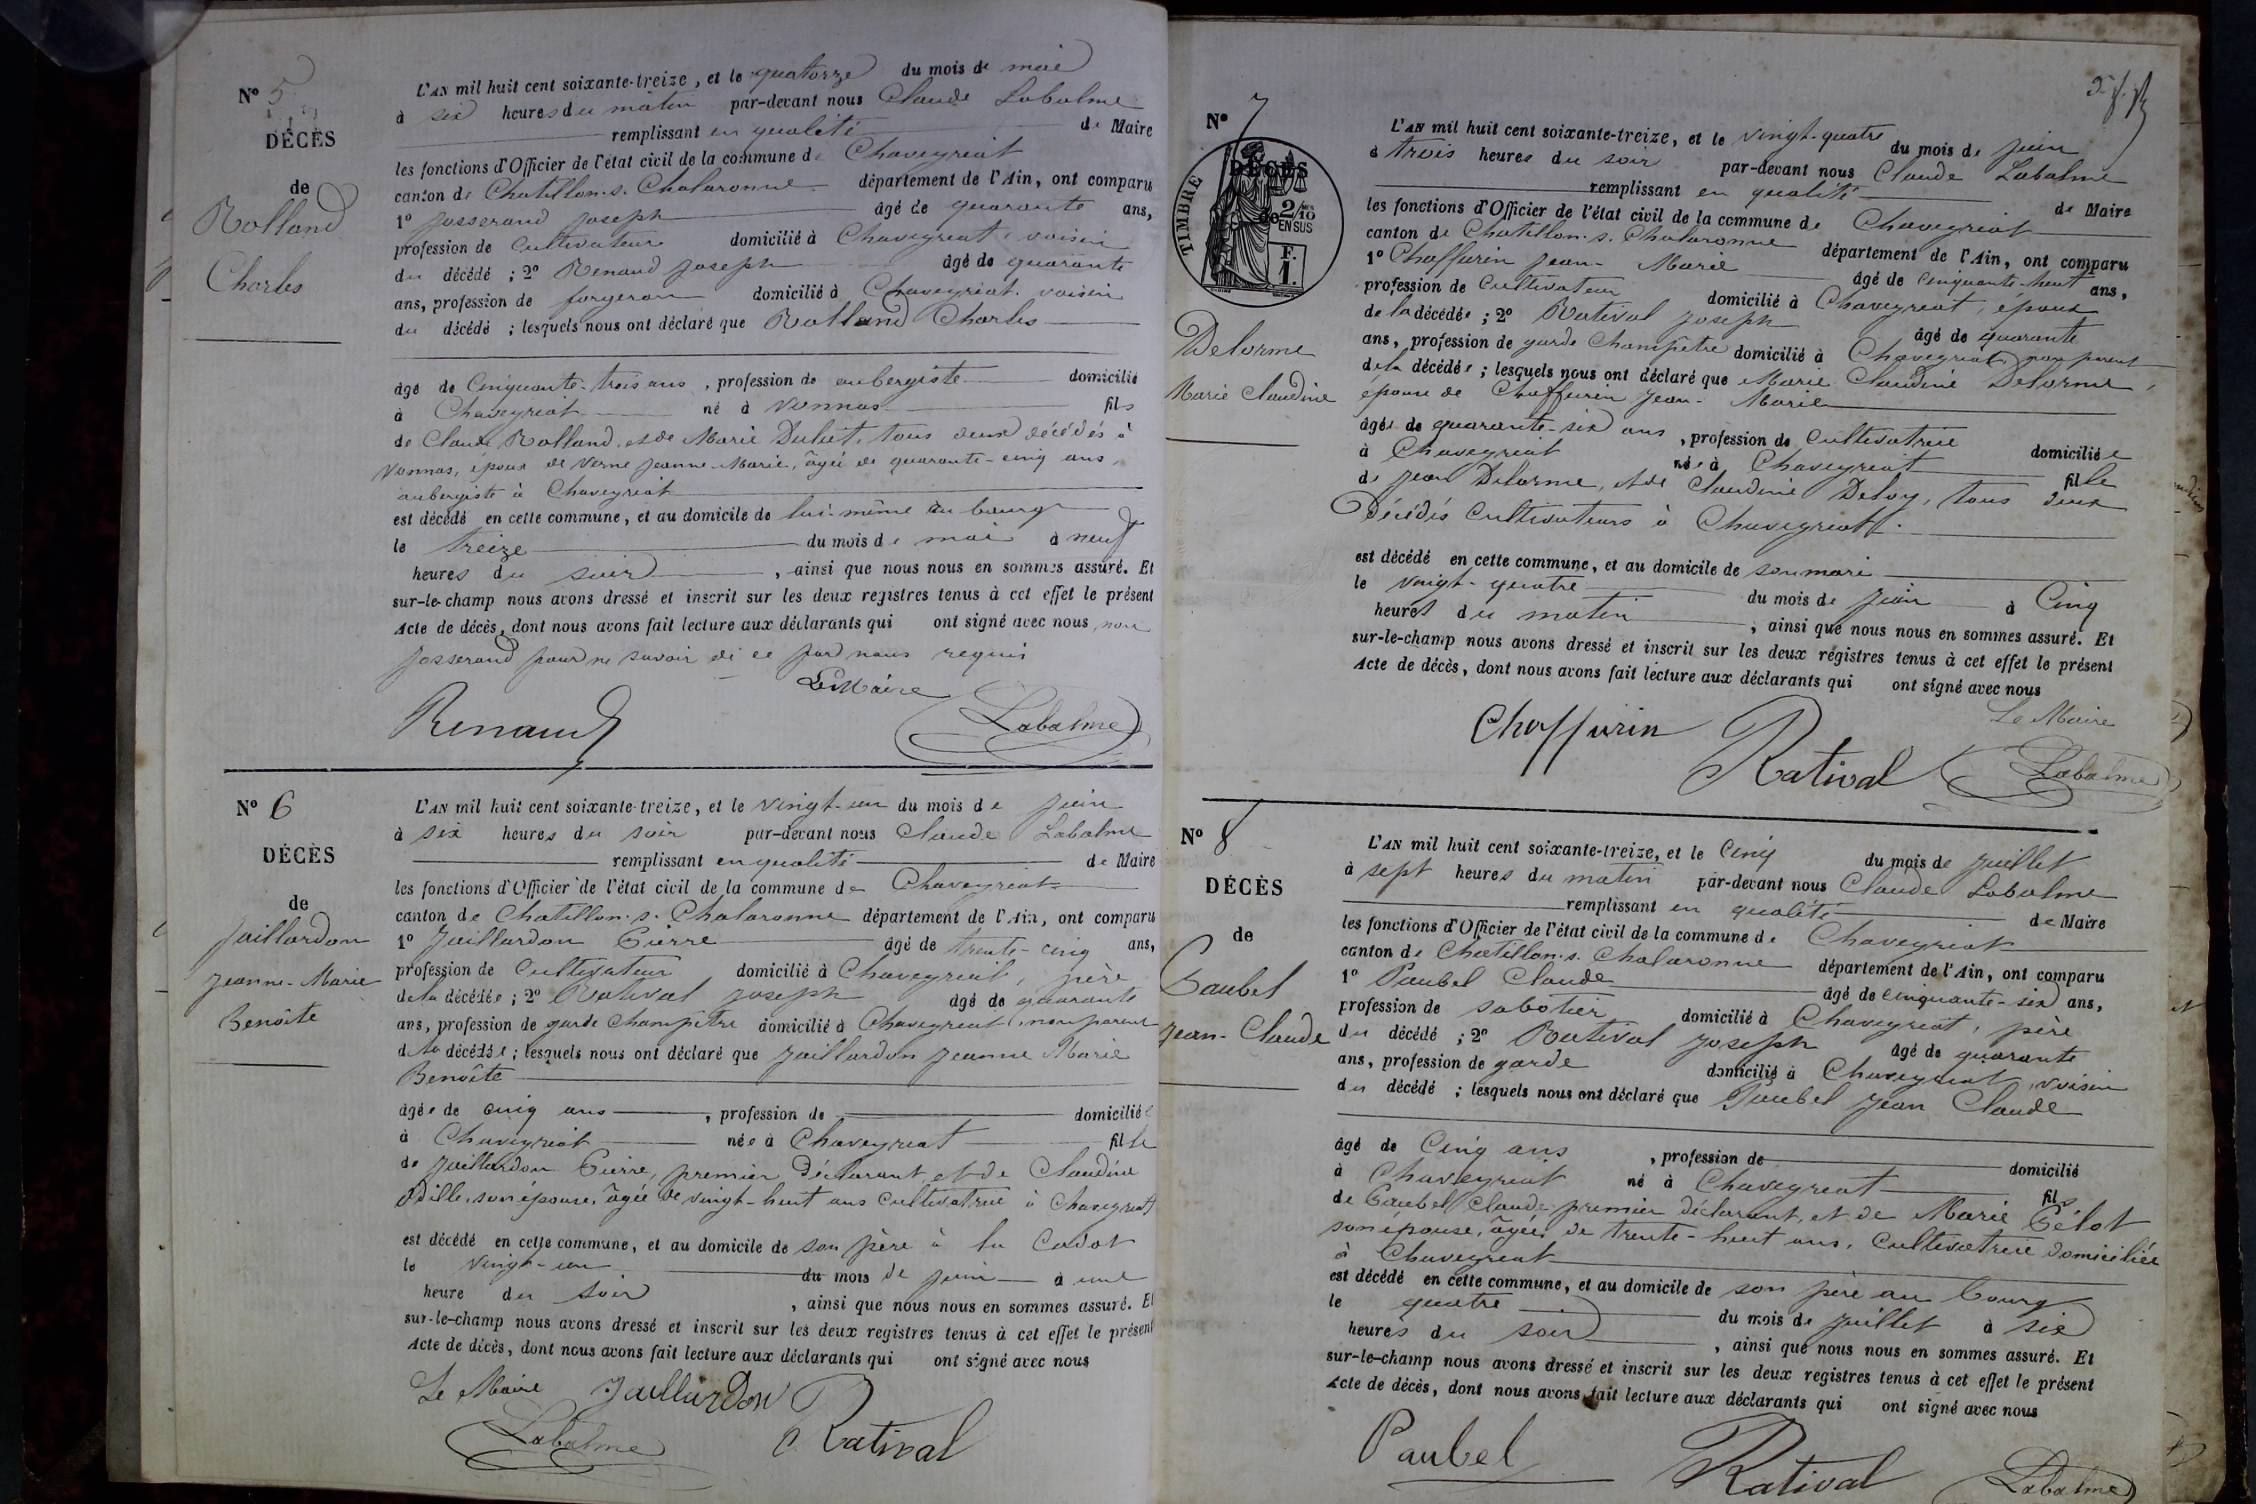 N° 5
DÉCÈS
de
Rolland
Charles
L'AN mil huit cent soixante-treize, et le quatorze du mois de mai
à six heures du matin par-devant nous Claude Labalme
remplissant en qualité de Maire
les fonctions d'Officier de l'état civil de la commune de Chaveyriat
canton de Chatillon-s.-Chalaronne département de l'Ain, ont comparu
1° Josserand Joseph âgé de quarante ans,
profession de cultivateur domicilié à Chaveyriat, voisin
du décédé ; 2° Renaud Joseph âgé de quarante
ans, profession de forgeron domicilié à Chaveyriat, voisin
du décédé ; lesquels nous ont déclaré que Rolland Charles
âgé de Cinquante-trois ans, profession de aubergiste domicilié
à Chaveyriat né à Vonnas fils
de Claude Rolland, et de Marie Dulut, tous deux décédés à
Vonnas, époux de Verne Jeanne-Marie, âgée de quarante-cinq ans,
aubergiste à Chaveyriat
est décédé en cette commune, et au domicile de lui-même au bourg
le treize du mois de mai à neuf
heures du soir, ainsi que nous nous en sommes assuré. Et
sur-le-champ nous avons dressé et inscrit sur les deux registres tenus à cet effet le présent
Acte de décès, dont nous avons fait lecture aux déclarants qui ont signé avec nous, non
Josserand pour ne savoir de ce par nous requis
Le Maire
Renaud Labalme
N° 6
DÉCÈS
de
Jaillardon
Jeanne-Marie
Benoîte
L'AN mil huit cent soixante-treize, et le vingt-un du mois de juin
à six heures du soir par-devant nous Claude Labalme
remplissant en qualité de Maire
les fonctions d'Officier de l'état civil de la commune de Chaveyriat
canton de Chatillon-s.-Chalaronne département de l'Ain, ont comparu
1° Jaillardon Pierre âgé de trente-cinq ans,
profession de Cultivateur domicilié à Chaveyriat, père
de la décédée ; 2° Ratival Joseph âgé de quarante
ans, profession de garde Champêtre domicilié à Chaveyriat, non parent
de la décédée ; lesquels nous ont déclaré que Jaillardon Jeanne Marie
Benoîte
âgée de cinq ans, profession de domiciliée
à Chaveyriat née à Chaveyriat fille
de Jaillardon Pierre, premier déclarant, et de Claudine
Odille, son épouse, âgée de vingt-huit ans cultivatrice à Chaveyriat
est décédé en cette commune, et au domicile de son père à la Cadot
le vingt-un du mois de juin à une
heure du soir, ainsi que nous nous en sommes assuré. Et
sur-le-champ nous avons dressé et inscrit sur les deux registres tenus à cet effet le présent
Acte de décès, dont nous avons fait lecture aux déclarants qui ont signé avec nous
Le Maire Jaillardon
Labalme Ratival
N° 7
TIMBRE
2/10 EN SUS
F. 1.
DÉCÈS
de
Delorme
Marie Claudine
L'AN mil huit cent soixante-treize, et le vingt-quatre du mois de juin
à trois heures du soir par-devant nous Claude Labalme
remplissant en qualité de Maire
les fonctions d'Officier de l'état civil de la commune de Chaveyriat
canton de Chatillon-s.-Chalaronne département de l'Ain, ont comparu
1° Chaffurin Jean-Marie âgé de cinquante-huit ans,
profession de Cultivateur domicilié à Chaveyriat, époux
de la décédée ; 2° Ratival Joseph âgé de quarante
ans, profession de garde Champêtre domicilié à Chaveyriat, non parent
de la décédée ; lesquels nous ont déclaré que Marie Claudine Delorme,
épouse de Chaffurin Jean-Marie
âgée de quarante-six ans, profession de cultivatrice domiciliée
à Chaveyriat née à Chaveyriat fille
de Jean Delorme, et de Claudine Deloy, tous deux
Décédés Cultivateurs à Chaveyriat.
est décédé en cette commune, et au domicile de son mari
le vingt-quatre du mois de juin à Cinq
heures du matin, ainsi que nous nous en sommes assuré. Et
sur-le-champ nous avons dressé et inscrit sur les deux régistres tenus à cet effet le présent
Acte de décès, dont nous avons fait lecture aux déclarants qui ont signé avec nous
Le Maire
Chaffurin Ratival Labalme
N° 8
DÉCÈS
de
Paubel
Jean-Claude
L'AN mil huit cent soixante-treize, et le Cinq du mois de juillet
à sept heures du matin par-devant nous Claude Labalme
remplissant en qualité de Maire
les fonctions d'Officier de l'état civil de la commune de Chaveyriat
canton de Chatillon-s.-Chalaronne département de l'Ain, ont comparu
1° Paubel Claude âgé de cinquante-six ans,
profession de sabotier domicilié à Chaveyriat, père
du décédé ; 2° Ratival Joseph âgé de quarante
ans, profession de garde domicilié à Chaveyriat, voisin
du décédé ; lesquels nous ont déclaré que Paubel Jean Claude
âgé de Cinq ans, profession de domicilié
à Chaveyriat né à Chaveyriat fils
de Paubel Claude, premier déclarant, et de Marie Pélot
son épouse, âgée de trente-huit ans, Cultivatrice domiciliée
à Chaveyriat
est décédé en cette commune, et au domicile de son père au bourg
le quatre du mois de juillet à six
heures du soir, ainsi que nous nous en sommes assuré. Et
sur-le-champ nous avons dressé et inscrit sur les deux registres tenus à cet effet le présent
Acte de décès, dont nous avons fait lecture aux déclarants qui ont signé avec nous
Paubel Ratival Labalme